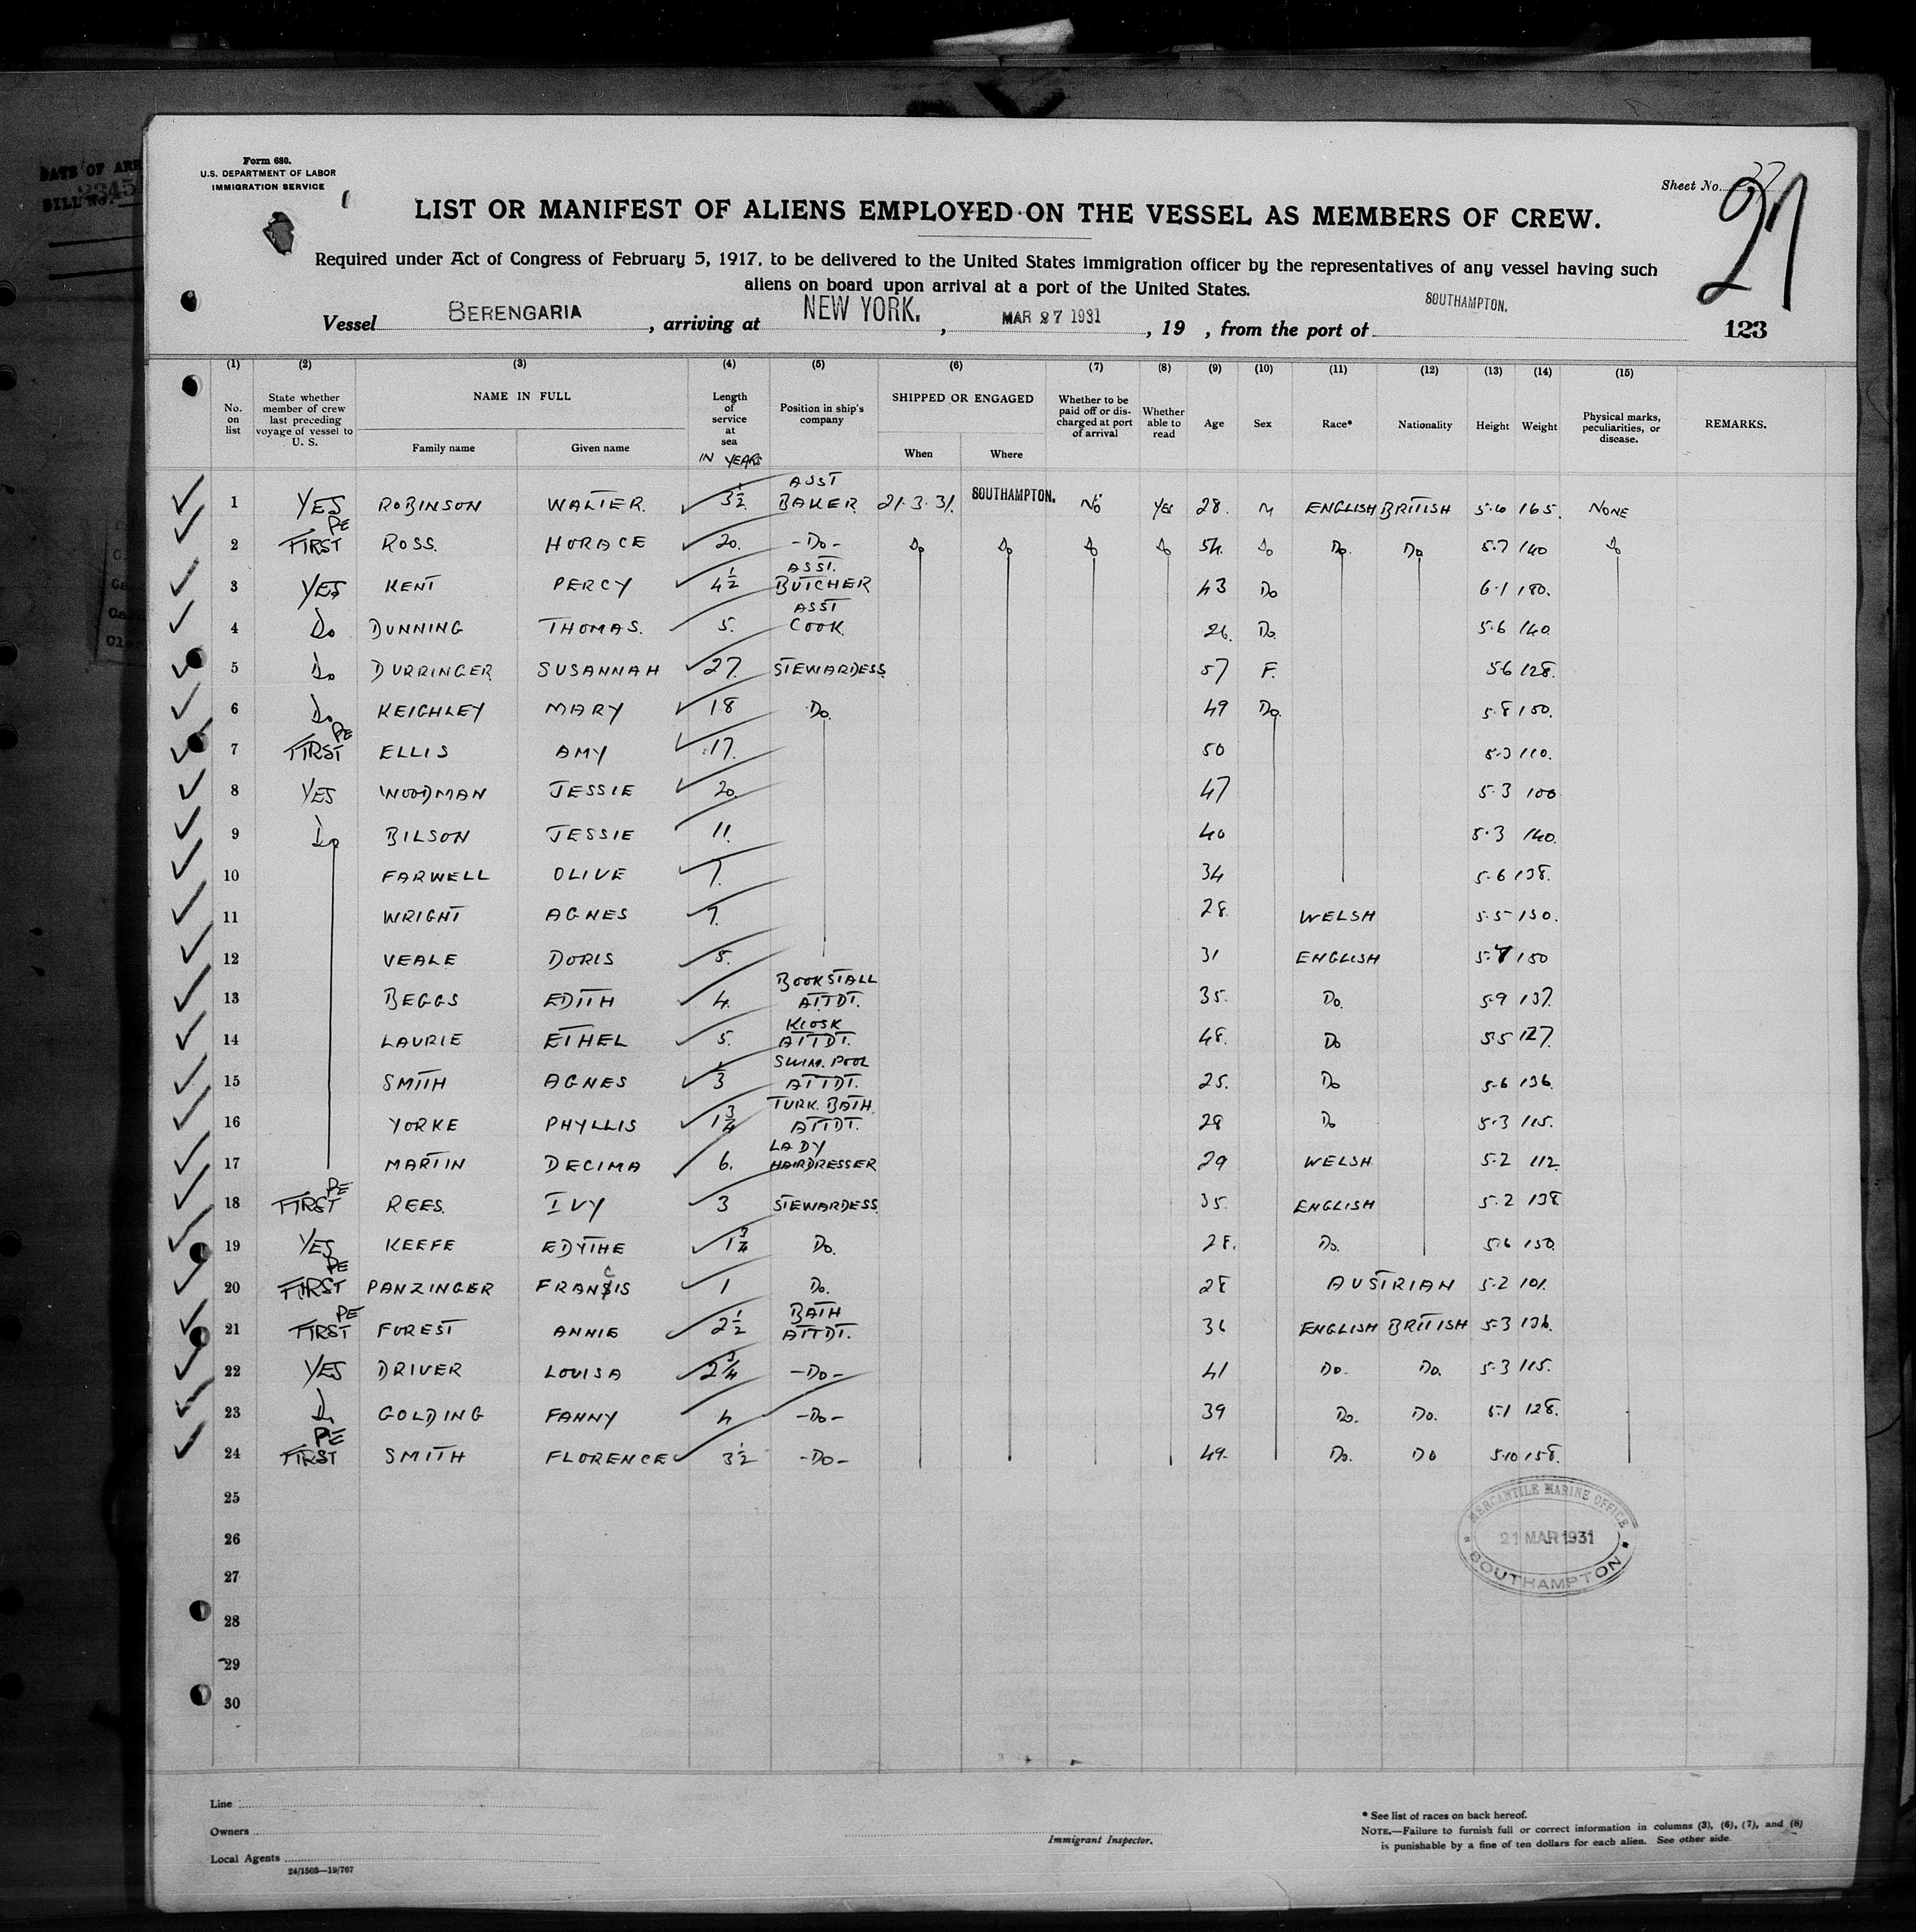 DATE OF ARR
BILL No.
Form 680.
U.S. DEPARTMENT OF LABOR
IMMIGRATION SERVICE
Sheet No.
27
LIST OR MANIFEST OF ALIENS EMPLOYED ON THE VESSEL AS MEMBERS OF CREW.
Required under Act of Congress of February 5, 1917, to be delivered to the United States immigration officer by the representatives of any vessel having such
aliens on board upon arrival at a port of the United States.
Vessel BERENGARIA, arriving at NEW YORK., MAR 27 1931, 19 , from the port of SOUTHAMPTON.
123
(1) (2) (3) (4) (5) (6) (7) (8) (9) (10) (11) (12) (13) (14) (15)
No. on list State whether member of crew last preceding voyage of vessel to U. S. NAME IN FULL Family name Given name Length of service at sea IN YEARS Position in ship's company SHIPPED OR ENGAGED When Where Whether to be paid off or discharged at port of arrival Whether able to read Age Sex Race* Nationality Height Weight Physical marks, peculiarities, or disease. REMARKS.
1 YES ROBINSON WALTER. 3½ ASST BAKER 21.3.31. SOUTHAMPTON. NO YES 28. M ENGLISH BRITISH 5.6 165. NONE
2 FIRST RE ROSS. HORACE 20. -DO- Do Do Do Do 54. Do Do. Do 5.7 140 Do
3 YES KENT PERCY 4½ ASST. BUTCHER 43 Do 6.1 180.
4 Do DUNNING THOMAS. 5. ASST COOK 26. Do. 5.6 140.
5 Do DURRINGER SUSANNAH 27. STEWARDESS 57 F. 5.6 128.
6 Do. KEIGHLEY MARY 18 Do. 49 Do. 5.8 150.
7 FIRST RE ELLIS AMY 17. 50 5.3 110.
8 YES WOODMAN JESSIE 20. 47 5.3 100
9 Do BILSON JESSIE 11. 40 5.3 140.
10 FARWELL OLIVE 7. 34 5.6 138.
11 WRIGHT AGNES 7. 28. WELSH 5.5 130.
12 VEALE DORIS 5. 31 ENGLISH 150
13 BEGGS EDITH 4. BOOKSTALL ATTDT. 35. Do. 5.9 137.
14 LAURIE ETHEL 5. KIOSK ATTDT. 48. Do 5.5 127.
15 SMITH AGNES SWIM. POOL ATTDT. 25. Do 5.6 136.
16 YORKE PHYLLIS 1¾ TURK. BATH. ATTDT. 28 Do 5.3 115.
17 MARTIN DECIMA 6. LADY HAIRDRESSER 29 WELSH. 5.2 112.
18 FIRST RE REES. IVY 3 STEWARDESS. 35. ENGLISH 5.2 138
19 YES KEEFE EDYTHE 1¾ Do. 28. Do. 5.6 150.
20 FIRST RE PANZINGER FRANCIS 1 Do. 28 AUSTRIAN 5.2 101.
21 FIRST RE FOREST ANNIE 2½ BATH ATTDT. 36 ENGLISH BRITISH 5.3 136.
22 YES DRIVER LOUISA 2¾ -DO- 41 Do. Do. 5.3 115.
23 Do GOLDING FANNY 4 -DO- 39 Do. Do. 5.1 128.
24 FIRST RE SMITH FLORENCE 3½ -DO- 49. Do. Do 5.10 158.
25
26
27
28
29
30
MERCANTILE MARINE OFFICE
21 MAR 1931
SOUTHAMPTON
Line
Owners
Local Agents
24/1503—19/767
Immigrant Inspector.
* See list of races on back hereof.
NOTE.—Failure to furnish full or correct information in columns (3), (6), (7), and (8)
is punishable by a fine of ten dollars for each alien. See other side.